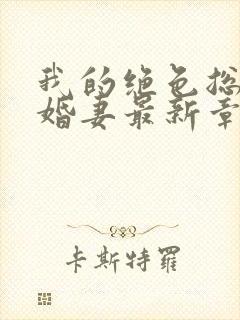 我的绝色总
婚妻最新章
卡斯特羅